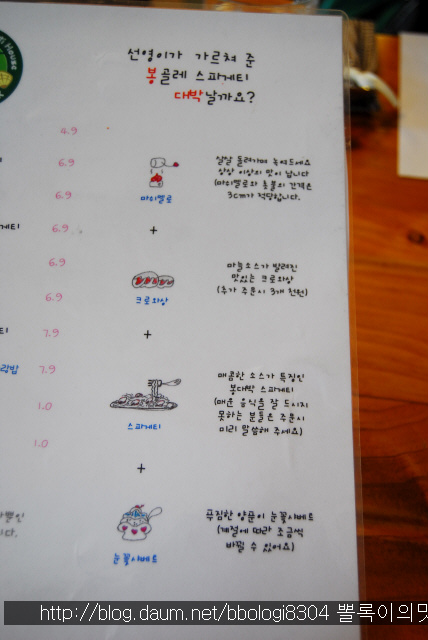 House
선영이가 가르쳐 준
봉골레 스파게티
대박날까요?
4.9
6.9
6.9
6.9
6.9
6.9
7.9
7.9
1.0
1.0
살살 돌려가며 녹여드세요
상상 이상의 맛이 납니다
(마쉬멜로와 촛불의 간격은
3cm가 적당합니다.
마쉬멜로
+
마늘소스가 발려진
맛있는 크로와상
(추가 주문시 3개 천원)
크로와상
+
매콤한 소스가 특징인
봉대박 스파게티
(매운 음식을 잘 드시지
못하는 분들은 주문시
미리 말씀해 주세요)
스파게티
+
푸짐한 양푼이 눈꽃샤베트
(계절에 따라 조금씩
바뀔 수 있어요)
눈꽃샤베트
http://blog.daum.net/bbologi8304 뽈록이의맛